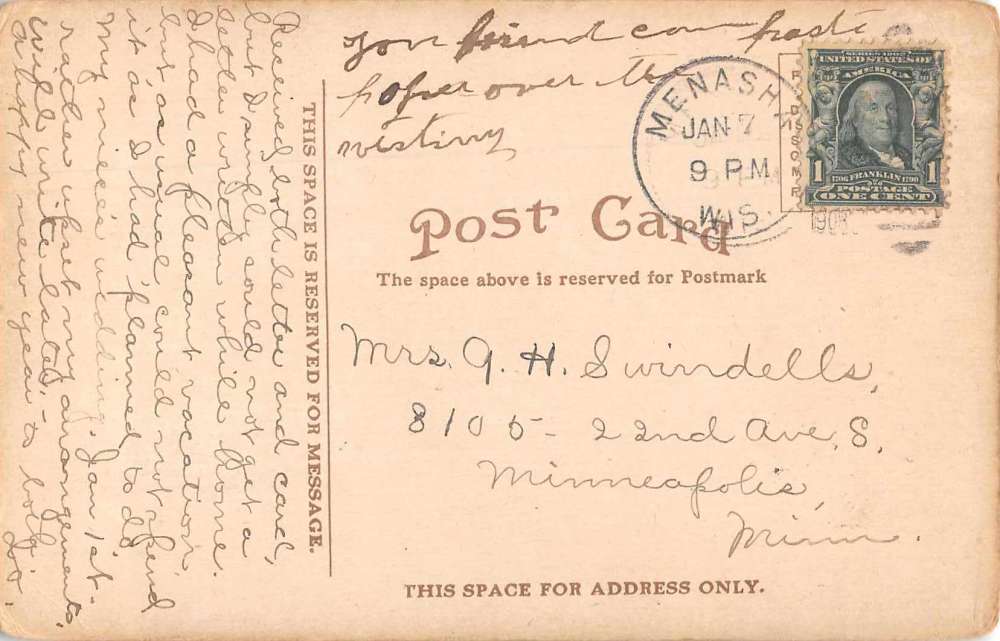 your friend can paste
paper over the
writing
MENASHA
JAN 7
9 PM
WIS.
1908
SERIES 1902
UNITED STATES OF
AMERICA
1706 FRANKLIN 1790
POSTAGE
1 ONE CENT 1
Post Card
The space above is reserved for Postmark
THIS SPACE IS RESERVED FOR MESSAGE.
Received both letter and card,
but I simply could not get a
letter written while home.
I had a pleasant vacation
but as usual could not spend
it as I had planned to do
My niece's wedding, Jan 1st-
rather upset my arrangements,
will write later. –
A happy new year to both.
Mrs. G. H. Swindells,
8105- 22nd Ave, S,
Minneapolis,
Minn.
THIS SPACE FOR ADDRESS ONLY.